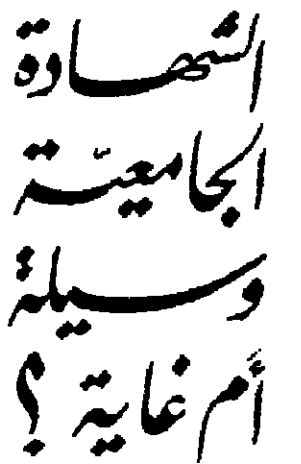 الشهادة
الجامعيّة
وسيلة
أم غاية ؟